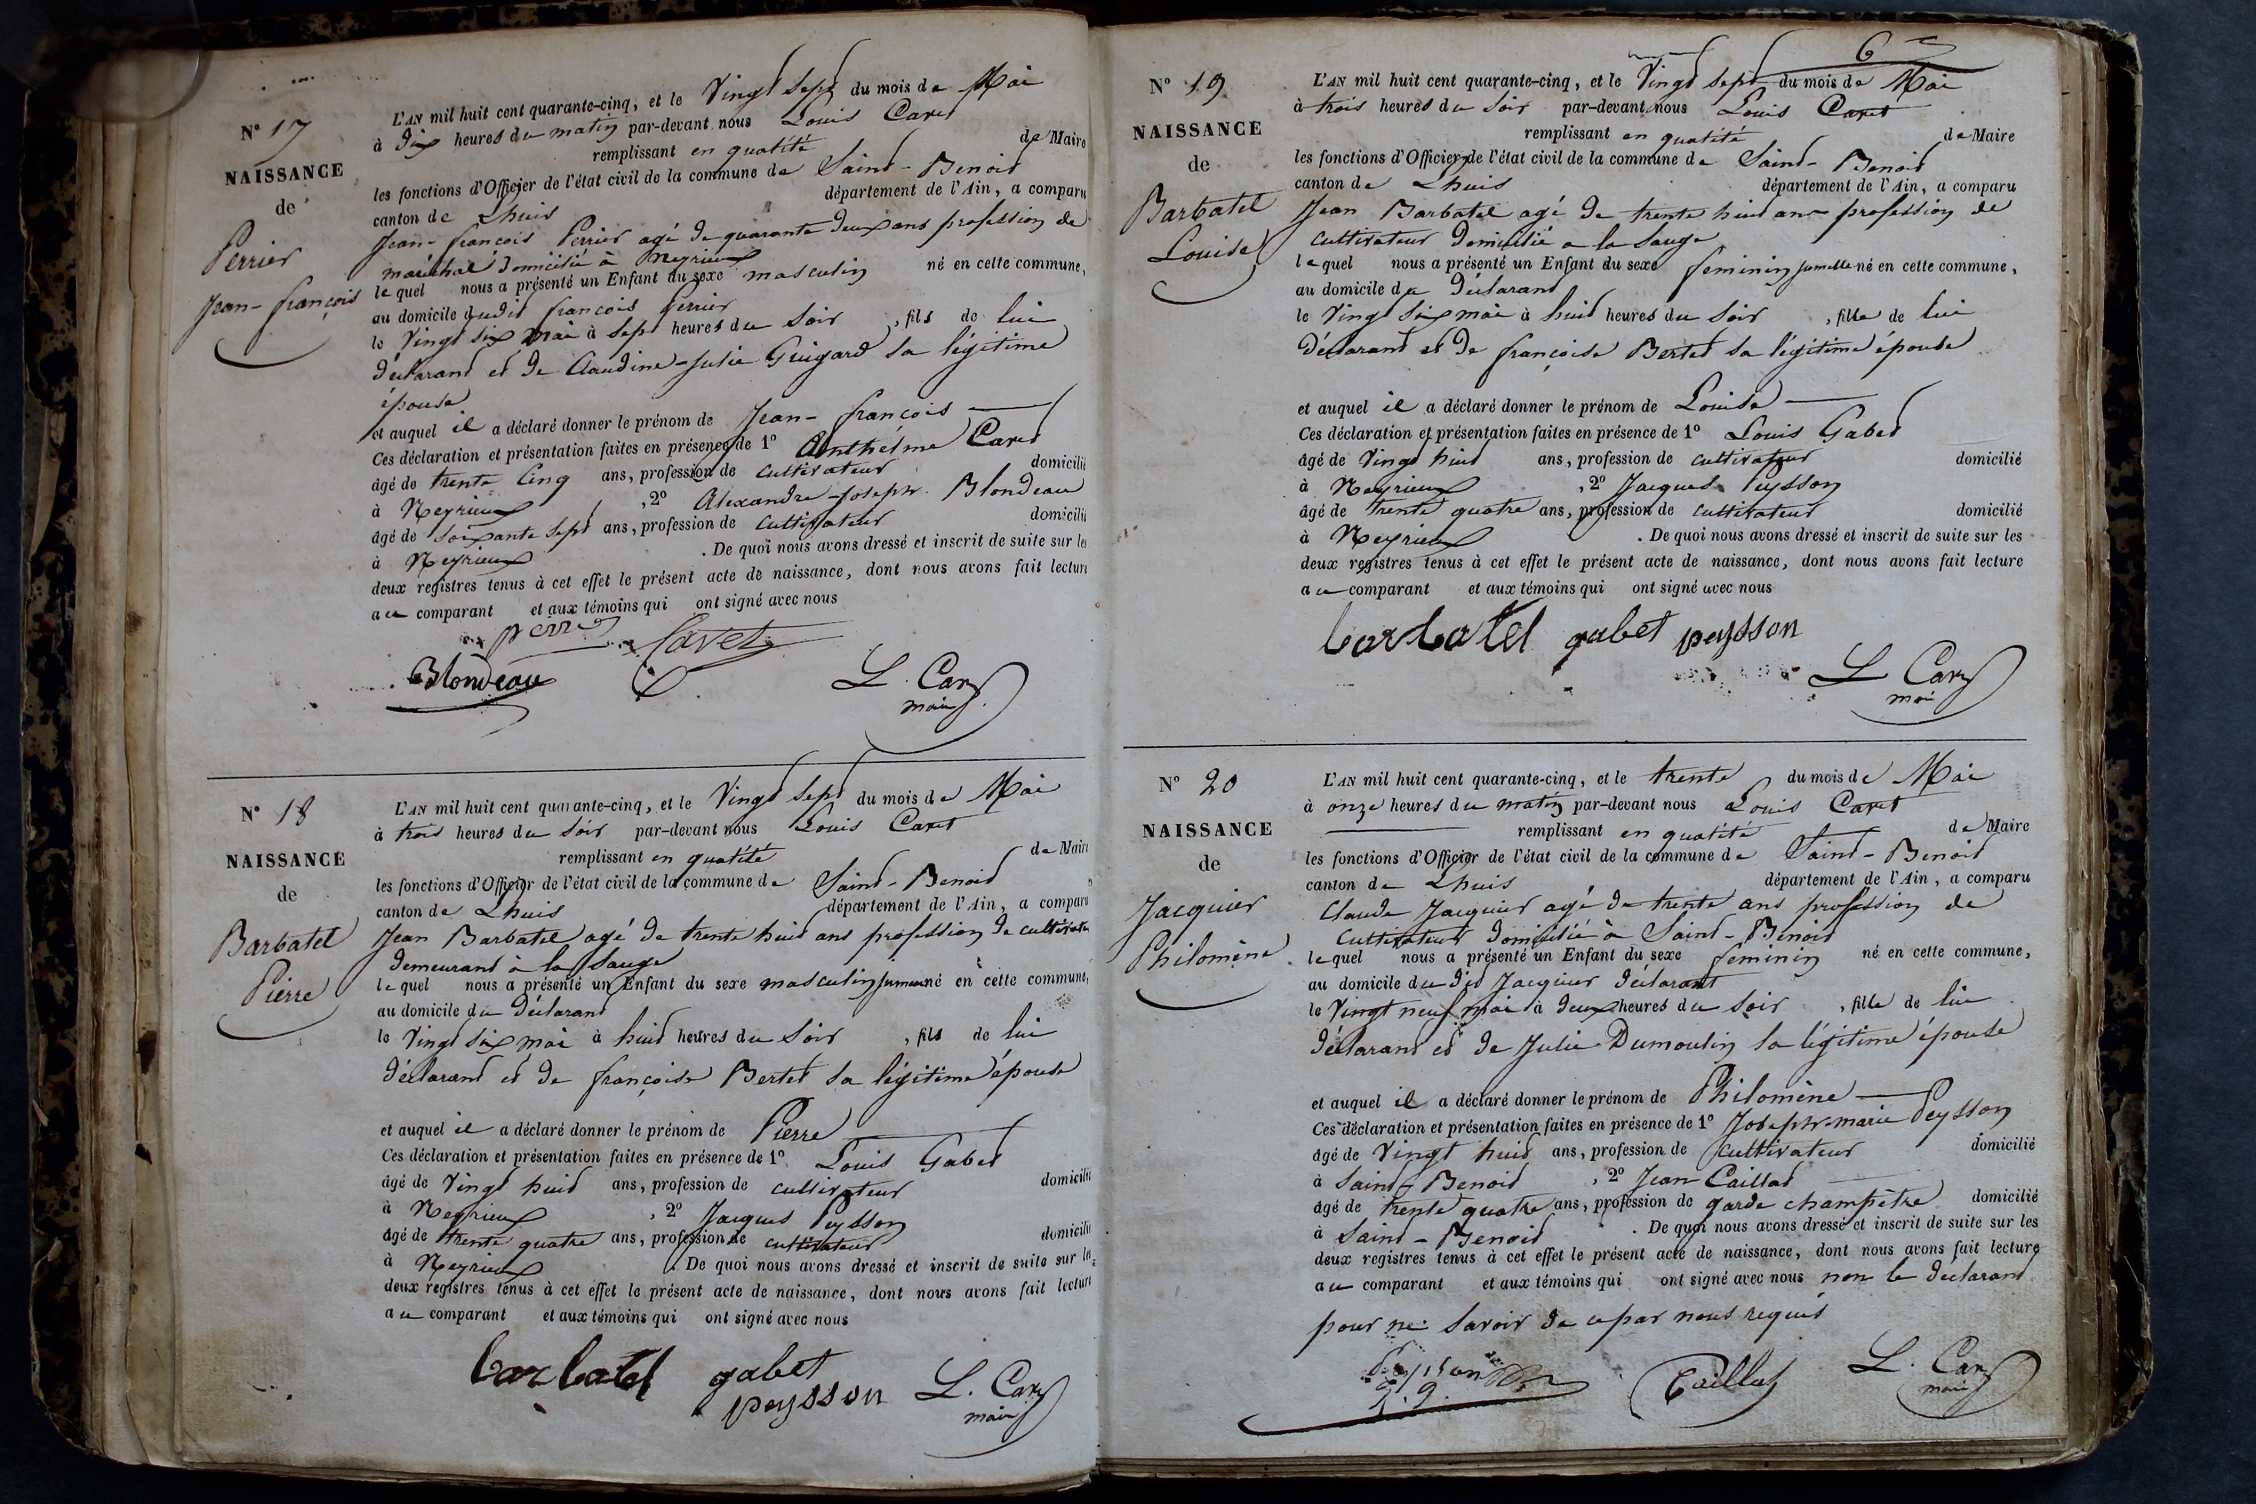 N° 17
NAISSANCE
de
Perrier
Jean-françois
L'AN mil huit cent quarante-cinq, et le Vingt sept du mois de Mai
à Dix heures du matin par-devant nous Louis Caret
remplissant en qualité de Maire
les fonctions d'Officier de l'état civil de la commune de Saint-Benoit
canton de Lhuis département de l'Ain, a comparu
Jean-françois Perrier agé de quarante deux ans profession de
maréchal domicilié à Neyrieux
lequel nous a présenté un Enfant du sexe masculin né en cette commune,
au domicile dudit françois Perrier
le Vingt six mai à sept heures du Soir, fils de lui
déclarant et de Claudine-Julie Guigard sa légitime
épouse
et auquel il a déclaré donner le prénom de Jean-françois
Ces déclaration et présentation faites en présence de 1° Anthelme Caret
âgé de trente cinq ans, profession de cultivateur domicilié
à Neyrieux, 2° Alexandre-Joseph Blondeau
âgé de soixante sept ans, profession de cultivateur domicilié
à Neyrieux. De quoi nous avons dressé et inscrit de suite sur les
deux registres tenus à cet effet le présent acte de naissance, dont nous avons fait lecture
au comparant et aux témoins qui ont signé avec nous
perrier Cavet
Blondeau L. Caret
maire
N° 18
NAISSANCE
de
Barbatel
Pierre
L'AN mil huit cent quarante-cinq, et le Vingt sept du mois de Mai
à trois heures du Soir par-devant nous Louis Caret
remplissant en qualité de Maire
les fonctions d'Officier de l'état civil de la commune de Saint-Benoit
canton de Lhuis département de l'Ain, a comparu
Jean Barbatel agé de trente huit ans profession de cultivateur
demeurant à la Sauge
lequel nous a présenté un Enfant du sexe masculin jumeau né en cette commune,
au domicile du déclarant
le Vingt six mai à huit heures du Soir, fils de lui
déclarant et de françoise Bertet sa légitime épouse
et auquel il a déclaré donner le prénom de Pierre
Ces déclaration et présentation faites en présence de 1° Louis Gabet
âgé de Vingt huit ans, profession de cultivateur domicilié
à Neyrieux, 2° Jacques Peysson
âgé de trente quatre ans, profession de cultivateur domicilié
à Neyrieux. De quoi nous avons dressé et inscrit de suite sur les
deux registres tenus à cet effet le présent acte de naissance, dont nous avons fait lecture
au comparant et aux témoins qui ont signé avec nous
barbatel gabet
peysson L. Caret
maire
6
N° 19
NAISSANCE
de
Barbatel
Louise
L'AN mil huit cent quarante-cinq, et le Vingt sept du mois de Mai
à trois heures du Soir par-devant nous Louis Caret
remplissant en qualité de Maire
les fonctions d'Officier de l'état civil de la commune de Saint-Benoit
canton de Lhuis département de l'Ain, a comparu
Jean Barbatel agé de trente huit ans profession de
cultivateur domicilié a la Sauge
lequel nous a présenté un Enfant du sexe feminin jumelle né en cette commune,
au domicile du déclarant
le Vingt six mai à huit heures du Soir, fille de lui
déclarant et de françoise Bertet sa légitime épouse
et auquel il a déclaré donner le prénom de Louise
Ces déclaration et présentation faites en présence de 1° Louis Gabet
âgé de Vingt huit ans, profession de cultivateur domicilié
à Neyrieux, 2° Jacques Peysson
âgé de trente quatre ans, profession de cultivateur domicilié
à Neyrieux. De quoi nous avons dressé et inscrit de suite sur les
deux registres tenus à cet effet le présent acte de naissance, dont nous avons fait lecture
au comparant et aux témoins qui ont signé avec nous
barbatel gabet peysson
L Caret
maire
N° 20
NAISSANCE
de
Jacquier
Philomène
L'AN mil huit cent quarante-cinq, et le trente du mois de Mai
à onze heures du matin par-devant nous Louis Caret
remplissant en qualité de Maire
les fonctions d'Officier de l'état civil de la commune de Saint-Benoit
canton de Lhuis département de l'Ain, a comparu
Claude Jacquier agé de trente ans profession de
Cultivateur domicilié à Saint-Benoit
lequel nous a présenté un Enfant du sexe feminin né en cette commune,
au domicile du dit Jacquier déclarant
le Vingt neuf mai à deux heures du Soir, fille de lui
déclarant et de Julie Dumoulin sa légitime épouse
et auquel il a déclaré donner le prénom de Philomène
Ces déclaration et présentation faites en présence de 1° Joseph-marie Peysson
âgé de Vingt huit ans, profession de cultivateur domicilié
à Saint-Benoit, 2° Jean Caillat
âgé de trente quatre ans, profession de garde champêtre domicilié
à Saint-Benoit. De quoi nous avons dressé et inscrit de suite sur les
deux registres tenus à cet effet le présent acte de naissance, dont nous avons fait lecture
au comparant et aux témoins qui ont signé avec nous non le déclarant
pour ne savoir de ce par nous requis
Peysson Caillat L. Caret
maire